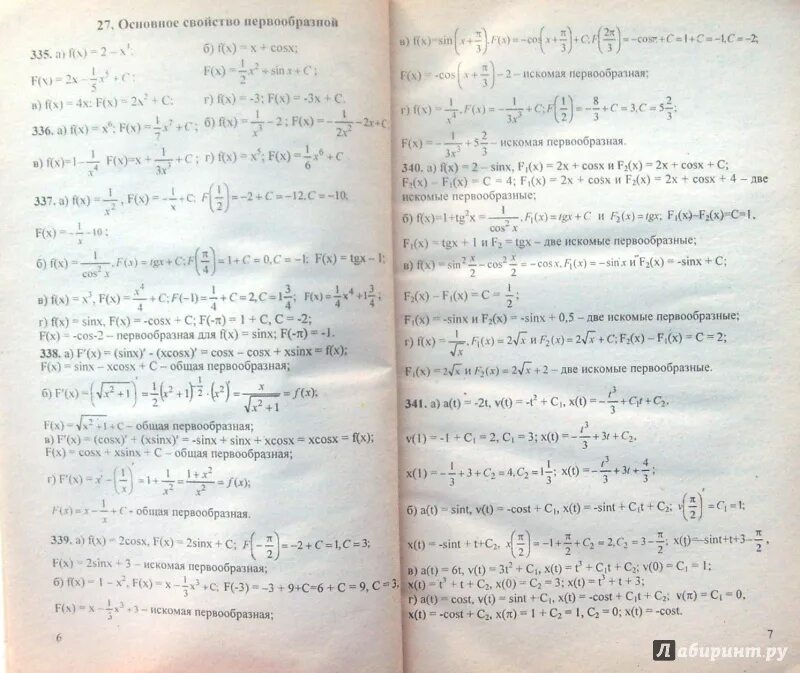 27. Основное свойство первообразной
335. а) f(x) = 2 – x⁴. б) f(x) = x + cosx;
F(x) = 2x – 1/5 x⁵ + C; F(x) = 1/2 x² + sinx + C;
в) f(x) = 4x; F(x) = 2x² + C; г) f(x) = -3; F(x) = -3x + C.
336. а) f(x) = x⁶; F(x) = 1/7 x⁷ + C; б) f(x) = 1/x³ – 2; F(x) = – 1/2x² – 2x + C
в) f(x)=1– 1/x⁴ F(x)= x + 1/3x³ + C; г) f(x) = x⁵; F(x) = 1/6 x⁶ + C
337. а) f(x) = 1/x², F(x) = – 1/x + C; F(1/2) = –2 + C = –12, C = –10,
F(x) = – 1/x – 10 ;
б) f(x) = 1/cos²x, F(x) = tgx + C; F(π/4) = 1 + C = 0, C = –1; F(x) = tgx – 1;
в) f(x) = x³, F(x) = x⁴/4 + C; F(-1) = 1/4 + C = 2, C = 1 3/4; F(x) = 1/4 x⁴ + 1 3/4;
г) f(x) = sinx, F(x) = -cosx + C; F(-π) = 1 + C, C = -2;
F(x) = -cos-2 – первообразная для f(x) = sinx; F(-π) = -1.
338. а) F'(x) = (sinx)' - (xcosx)' = cosx – cosx + xsinx = f(x);
F(x) = sinx – xcosx + C – общая первообразная;
б) F'(x) = (√x²+1)' = 1/2 (x² + 1)^-1/2 · (x²)' = x/√x²+1 = f(x);
F(x) = √x²+1 + C – общая первообразная;
в) F'(x) = (cosx)' + (xsinx)' = -sinx + sinx + xcosx = xcosx = f(x);
F(x) = cosx + xsinx + C – общая первообразная;
г) F'(x) = x' – (1/x)' = 1 + 1/x² = 1+x²/x² = f(x);
F(x) = x – 1/x + C - общая первообразная.
339. а) f(x) = 2cosx, F(x) = 2sinx + C; F(–π/2) = –2 + C = 1, C = 3;
F(x) = 2sinx + 3 – искомая первообразная;
б) f(x) = 1 – x², F(x) = x – 1/3 x³ + C; F(-3) = –3 + 9+C=6 + C = 9, C = 3.
F(x) = x – 1/3 x³ + 3 – искомая первообразная;
6
в) f(x)=sin(x+π/3), F(x) = –cos(x+π/3)+C; F(2π/3) = –cosπ + C = 1 + C = –1, C = –2;
F(x) = -cos(x+π/3) – 2 – искомая первообразная;
г) f(x) = 1/x⁴, F(x) = – 1/3x³ + C; F(1/2) = – 8/3 + C = 3, C = 5 2/3;
F(x) = – 1/3x³ + 5 2/3 – искомая первообразная.
340. а) f(x) = 2 – sinx, F₁(x) = 2x + cosx и F₂(x) = 2x + cosx + C;
F₂(x) – F₁(x) = C = 4; F₁(x) = 2x + cosx и F₂(x) = 2x + cosx + 4 – две
искомые первообразные;
б) f(x)=1+tg²x = 1/cos²x, F₁(x) = tgx + C и F₂(x) = tgx; F₁(x)–F₂(x)=C=1,
F₁(x) = tgx + 1 и F₂ = tgx – две искомые первообразные;
в) f(x)=sin² x/2 – cos² x/2 = – cosx, F₁(x) = – sinx и F₂(x) = -sinx + C;
F₂(x) – F₁(x) = C = 1/2;
F₁(x) = -sinx и F₂(x) = -sinx + 0,5 – две искомые первообразные;
г) f(x) = 1/√x, F₁(x) = 2√x и F₂(x) = 2√x + C; F₂(x) – F₁(x) = C = 2;
F₁(x) = 2√x и F₂(x) = 2√x + 2 – две искомые первообразные.
341. а) a(t) = -2t, v(t) = -t² + C₁, x(t) = – t³/3 + C₁t + C₂.
v(1) = -1 + C₁ = 2, C₁ = 3; x(t) = – t³/3 + 3t + C₂.
x(1) = – 1/3 + 3 + C₂ = 4, C₂ = 1 1/3; x(t) = – t³/3 + 3t + 4/3;
б) a(t) = sint, v(t) = -cost + C₁, x(t) = -sint + C₁t + C₂; v(π/2) = C₁ = 1;
x(t) = -sint + t+C₂, x(π/2) = –1 + π/2 + C₂ = 2, C₂ = 3 – π/2; x(t)=–sint+t+3–π/2,
в) a(t) = 6t, v(t) = 3t² + C₁, x(t) = t³ + C₁t + C₂; v(0) = C₁ = 1;
x(t) = t³ + t + C₂, x(0) = C₂ = 3; x(t) = t³ + t + 3;
г) a(t) = cost, v(t) = sint + C₁, x(t) = -cost + C₁t + C₂; v(π) = C₁ = 0,
x(t) = -cost + C₂, x(π) = 1 + C₂ = 1, C₂ = 0; x(t) = -cost.
7
Лабиринт.ру